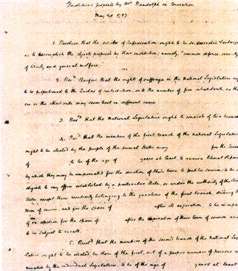 Resolutions proposed by Mr Randolph in Convention
May 29. 1787
1. Resolved that the articles of Confederation ought to be so corrected & enlarged
as to accomplish the objects proposed by their institution; namely, "common defence, security
of liberty and general welfare."
2. Resd therefore that the rights of suffrage in the National Legislature ought
to be proportioned to the Quotas of contribution, or to the number of free inhabitants, as the
one or the other rule may seem best in different cases.
3. Resd that the National Legislature ought to consist of two branches.
4. Resd that the members of the first branch of the national Legislature
ought to be elected by the people of the several States every for the term
of to be of the age of years at least, to receive liberal stipends
by which they may be compensated for the devotion of their time to public service; to be in-
eligible to any office established by a particular State, or under the authority of the United
States, except those peculiarly belonging to the functions of the first branch, during the
term of service, and for the space of after its expiration; to be incapable
of re-election for the space of after the expiration of their term of service, and
to be subject to recall.
5. Resold that the members of the second branch of the National Legis-
lature ought to be elected by those of the first, out of a proper number of persons
nominated by the individual Legislatures, to be of the age of years at least